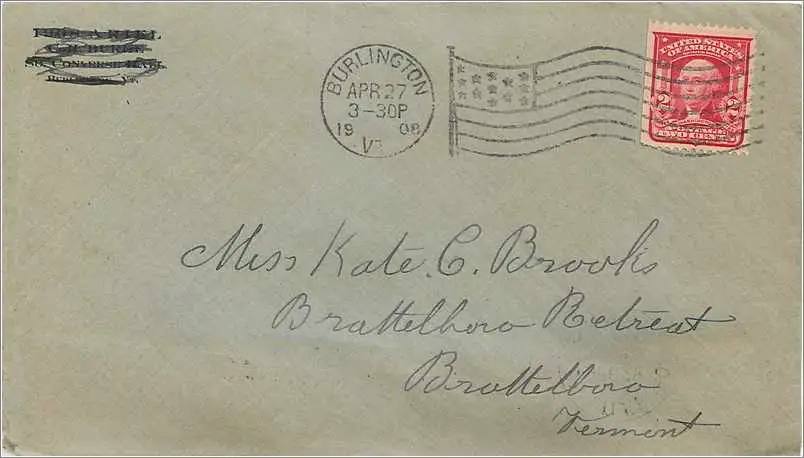 COLBURNE
CONVERSE HALL
BURLINGTON
APR 27
3-30P
1908
VT
UNITED STATES
OF AMERICA
2 2
POSTAGE
TWO CENTS
Miss Kate. C. Brooks
Brattelboro Retreat
Brattelboro
Vermont